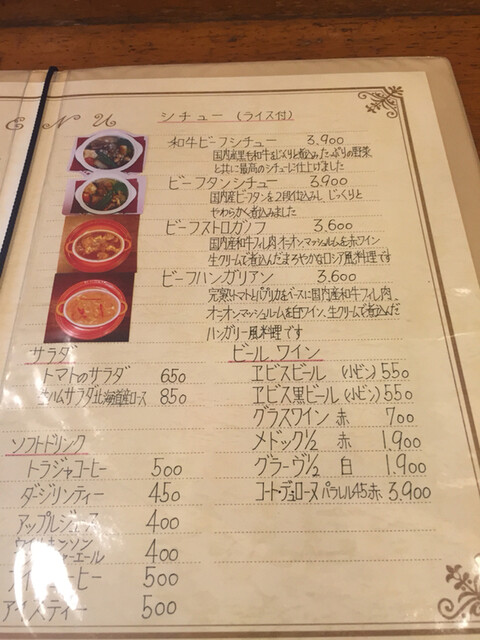 ENU
シチュー (ライス付)
和牛ビーフシチュー 3,900
国内産黒毛和牛をじっくりと煮込みたっぷりの野菜
と共に最高のシチューに仕上げました
ビーフタンシチュー 3,900
国内産ビーフタンを2段仕込みし じっくりと
やわらかく煮込みました
ビーフストロガノフ 3,600
国内産和牛フィレ肉オニオンマッシュルームを赤ワイン
生クリームで煮込んだまろやかなロシア風料理です
ビーフハンガリアン 3,600
完熟トマトとパプリカをベースに国内産和牛フィレ肉、
オニオンマッシュルームを白ワイン、生クリームで煮込んだ
ハンガリー風料理です
サラダ
トマトのサラダ 650
生ハムサラダ北海道産ロース 850
ソフトドリンク
トラジャコーヒー 500
ダージリンティー 450
アップルジュース 400
ウイルキンソン
ジンジャーエール 400
アイスコーヒー 500
アイスティー 500
ビール、ワイン
ヱビスビール (小ビン) 550
ヱビス黒ビール (小ビン) 550
グラスワイン 赤 700
メドック1/2 赤 1,900
グラーヴ1/2 白 1,900
コート・デュ・ローヌ パラレル45赤 3,900